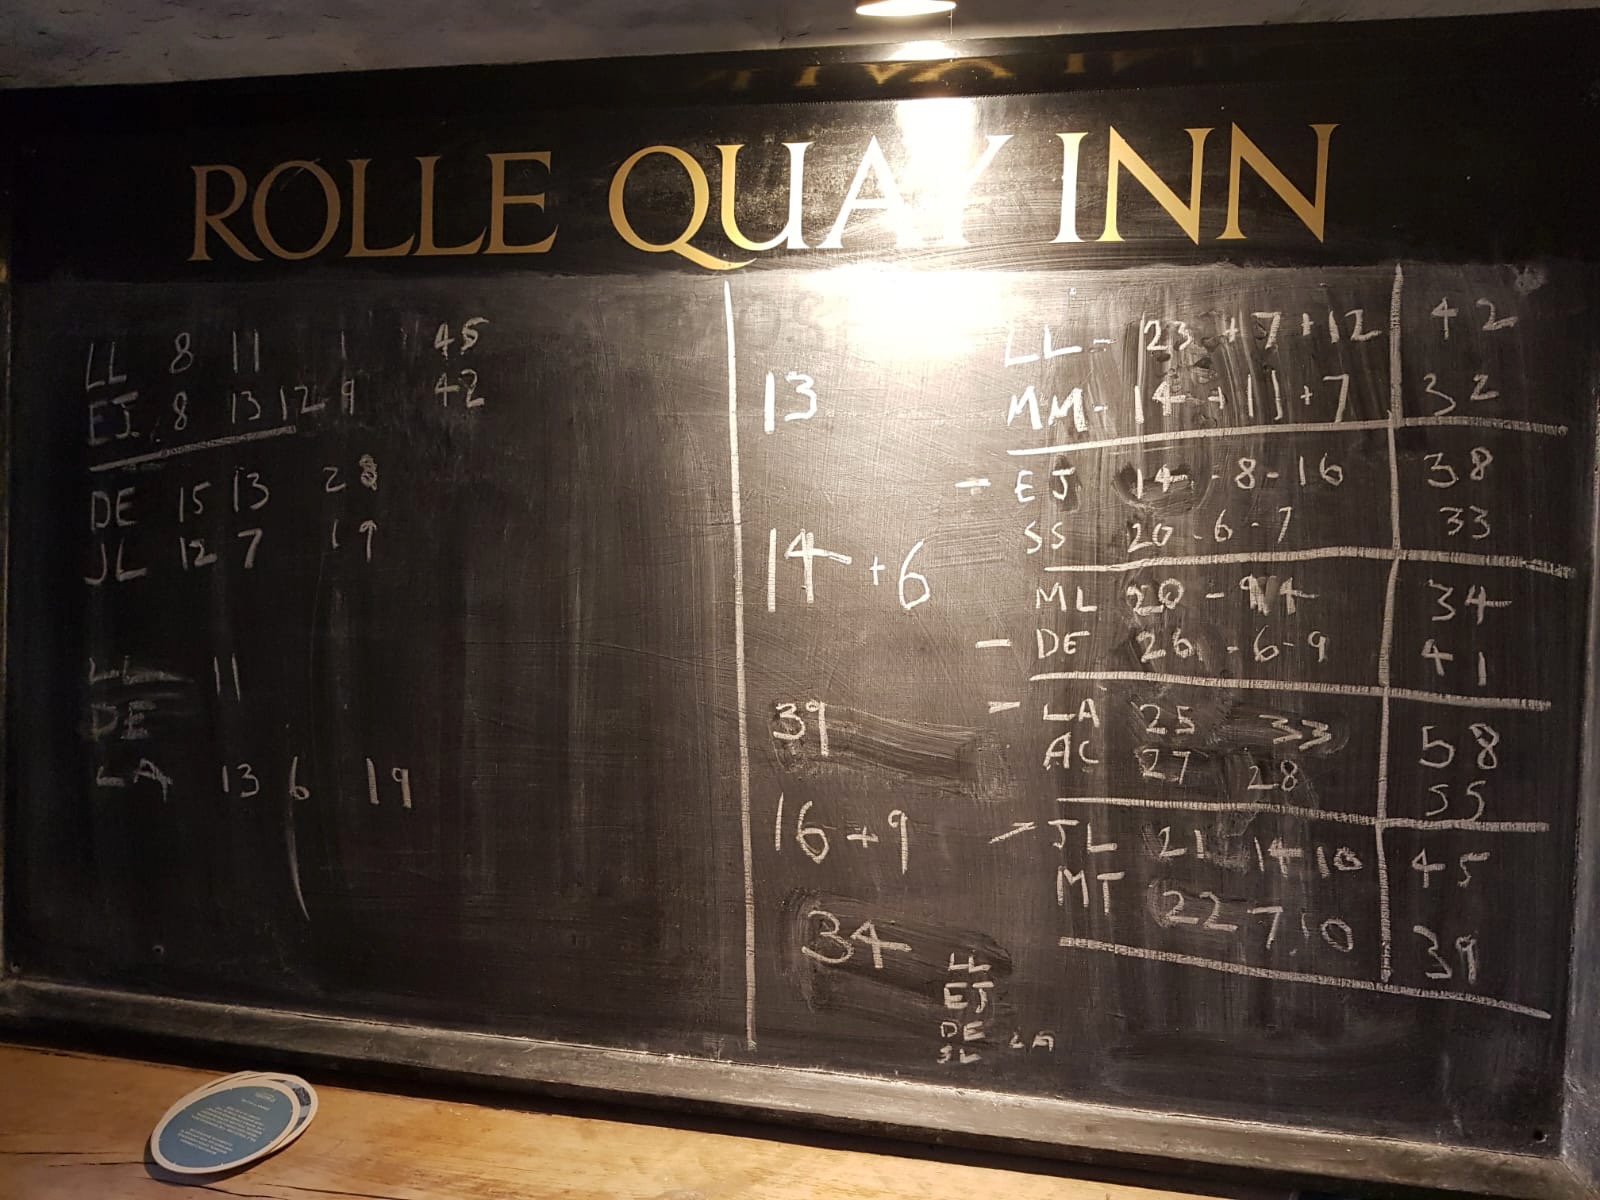 ROLLE QUAY INN
LL 8 11 1 45
EJ 8 13 12 9 42
DE 15 13 28
JL 12 7 19
LL 11
DE
LA 13 6 19
13
14 + 6
39
16 + 9
34
LL
EJ
DE
JL LA
LL - 23 + 7 + 12 42
MM - 14 + 11 + 7 32
- EJ 14 - 8 - 16 38
SS 20 - 6 - 7 33
ML 20 - 14 34
- DE 26 - 6 - 9 41
- LA 25 33 58
AC 27 28 55
- JL 21 14 10 45
MT 22 7 10 39